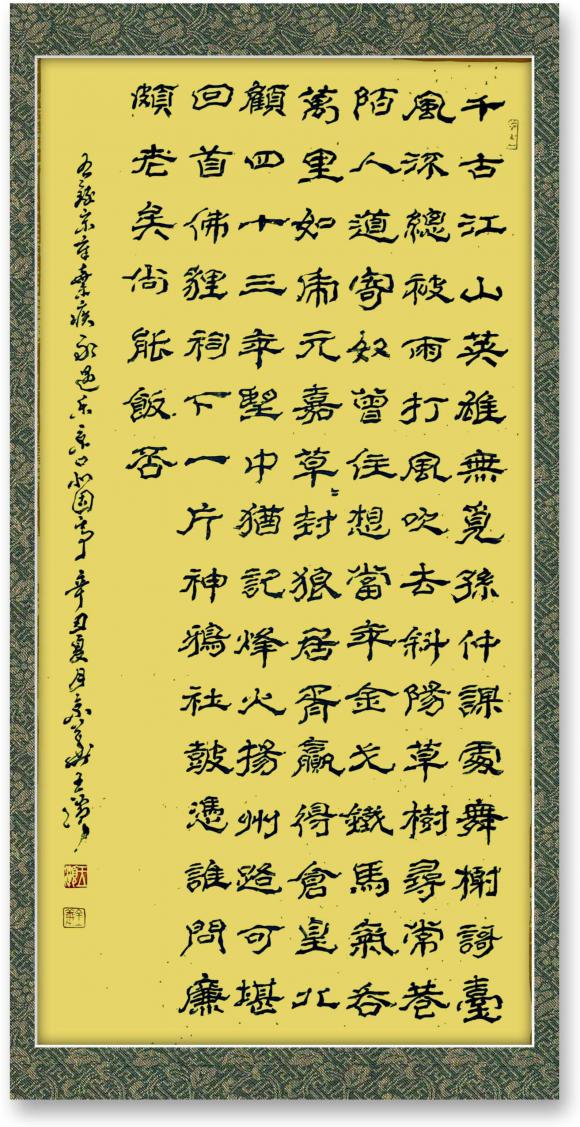 千古江山英雄無覓孫仲謀處舞榭謌臺
風流總被雨打風吹去斜陽草樹尋常巷
陌人道寄奴曾住想當年金戈鐵馬氣吞
萬里如虎元嘉草〻封狼居胥贏得倉皇北
顧四十三年望中猶記烽火揚州路可堪
回首佛貍祠下一片神鴉社鼓憑誰問廉
頗老矣尚能飯否
右錄宋辛棄疾永遇樂京口北固亭 辛丑夏月